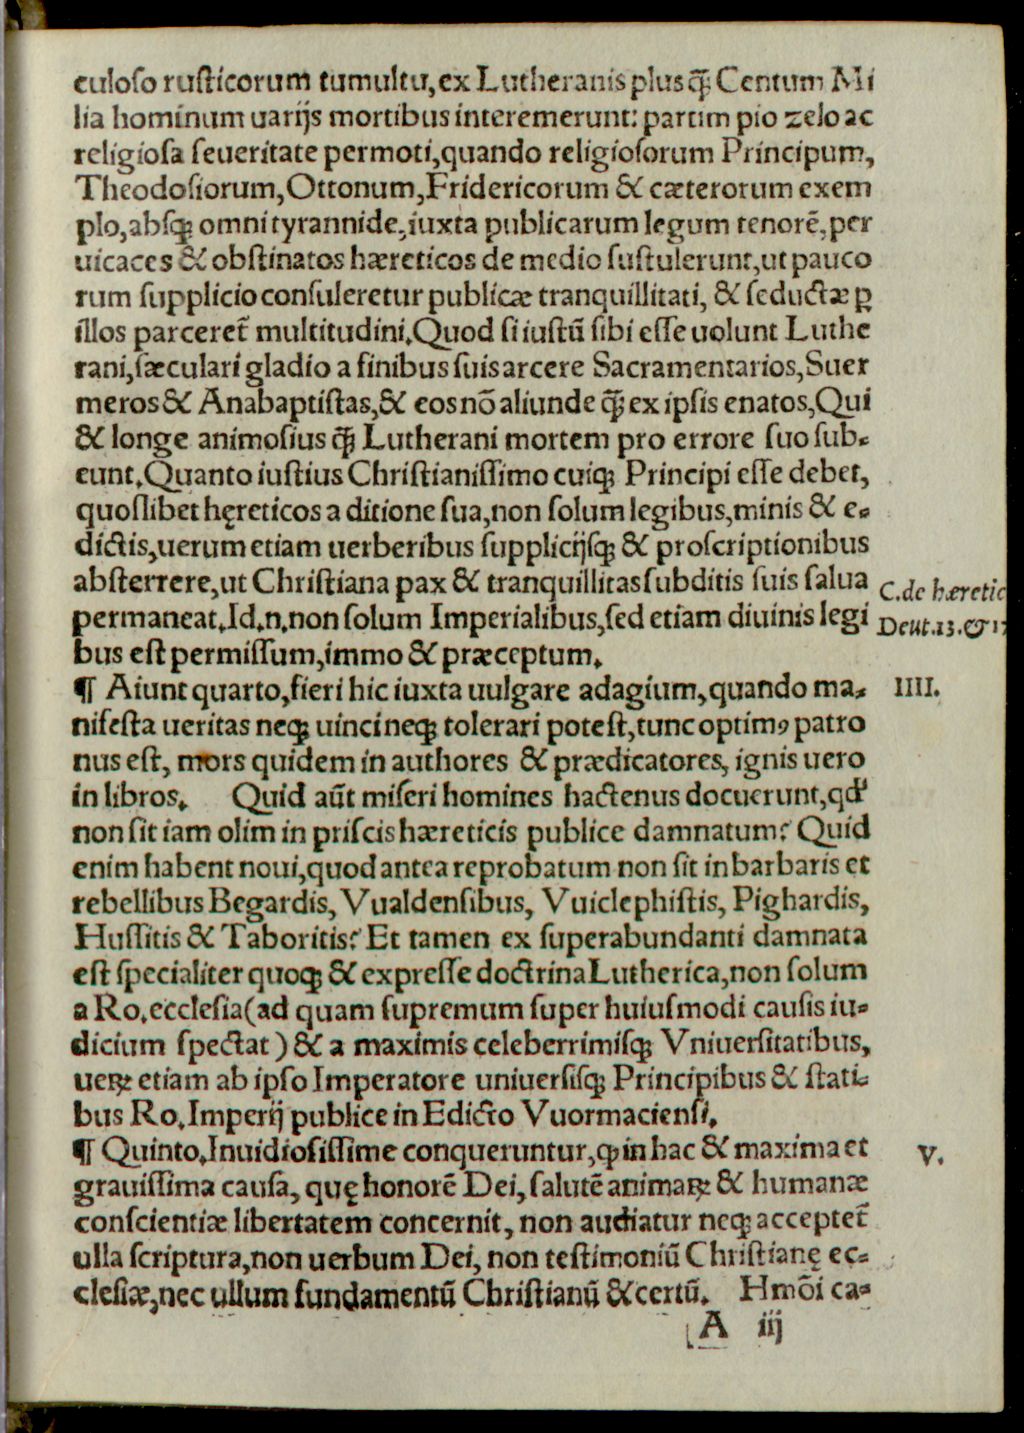 culoso rusticorum tumultu,ex Lutheranis plus q̃ꝫ Centum Mi
lia hominum uarijs mortibus interemerunt: partim pio zelo ac
religiosa seueritate permoti,quando religiosorum Principum,
Theodosiorum,Ottonum,Fridericorum & cæterorum exem
plo,absqꝫ omni tyrannide,iuxta publicarum legum tenorē,per
uicaces & obstinatos hæreticos de medio sustulerunt,ut pauco
rum supplicio consuleretur publicæ tranquillitati, & seductæ ꝑ
illos parceret̃ multitudini.Quod si iustū sibi esse uolunt Luthe
rani,sæculari gladio a finibus suis arcere Sacramentarios,Suer
meros & Anabaptistas,& eos nō aliunde q̃ꝫ ex ipsis enatos,Qui
& longe animosius q̃ꝫ Lutherani mortem pro errore suo sub-
eunt.Quanto iustius Christianissimo cuiqꝫ Principi esse debet,
quoslibet hęreticos a ditione sua,non solum legibus,minis & e-
dictis,uerum etiam uerberibus supplicijsqꝫ & proscriptionibus
absterrere,ut Christiana pax & tranquillitas subditis suis salua
C.de hæretic
permaneat.Id.n.non solum Imperialibus,sed etiam diuinis legi
Deut.13.& 17
bus est permissum,immo & præceptum.
¶ Aiunt quarto,fieri hic iuxta uulgare adagium,quando ma-
IIII.
nifesta ueritas neqꝫ uinci neqꝫ tolerari potest,tunc optimꝰ patro
nus est, mors quidem in authores & prædicatores, ignis uero
in libros. Quid aūt miseri homines hactenus docuerunt,qd'
non sit iam olim in priscis hæreticis publice damnatum? Quid
enim habent noui,quod antea reprobatum non sit in barbaris et
rebellibus Begardis, Vualdensibus, Vuiclephistis, Pighardis,
Hussitis & Taboritis? Et tamen ex superabundanti damnata
est specialiter quoqꝫ & expresse doctrina Lutherica,non solum
a Ro.ecclesia(ad quam supremum super huiusmodi causis iu-
dicium spectat) & a maximis celeberrimisqꝫ Vniuersitatibus,
ueꝝ etiam ab ipso Imperatore uniuersisqꝫ Principibus & stati-
bus Ro.Imperij publice in Edicto Vuormaciensi.
¶ Quinto.Inuidiosissime conqueruntur,ꝙ in hac & maxima et
V.
grauissima causa, quę honorē Dei, salutē animaꝝ & humanæ
conscientiæ libertatem concernit, non audiatur neqꝫ acceptet̃
ulla scriptura,non uerbum Dei, non testimoniū Christianę ec-
clesiæ,nec ullum fundamentū Christianū & certū. Hmōi ca-
A iij